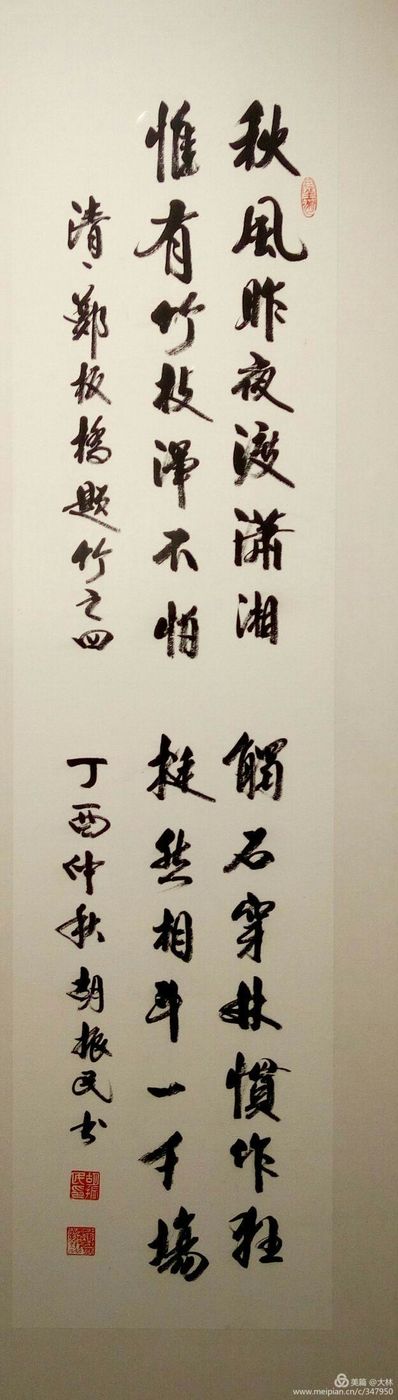 秋風昨夜渡瀟湘 觸石穿林慣作狂
惟有竹枝渾不怕 挺然相鬥一千場
清、鄭板橋題竹之四 丁酉仲秋胡振民书
美篇 @大林
www.meipian.cn/c/347950